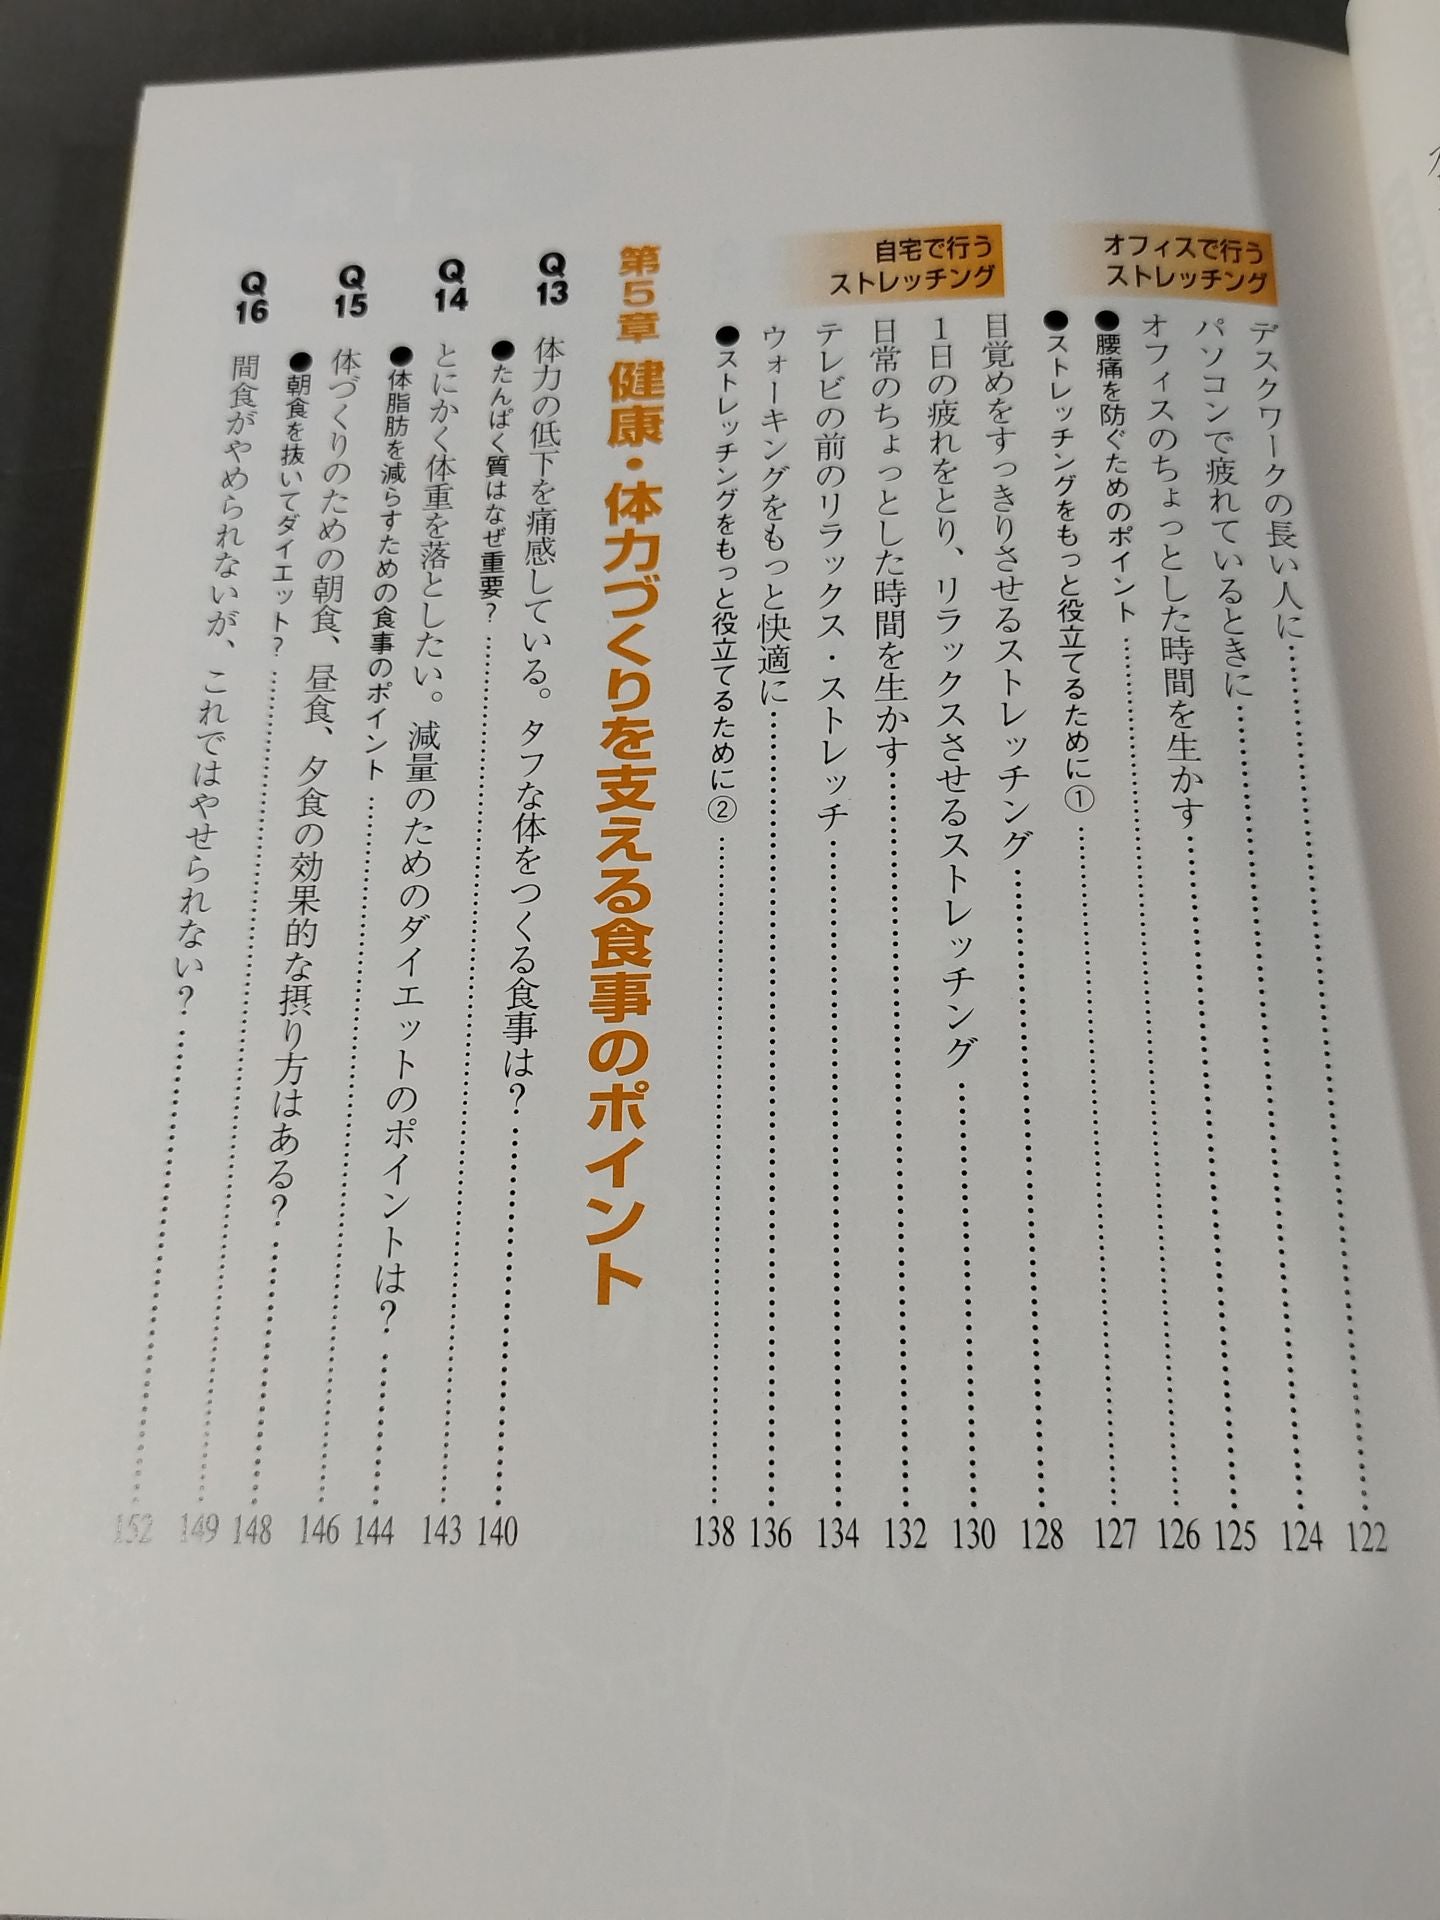 オフィスで行う
ストレッチング
デスクワークの長い人に……122
パソコンで疲れているときに……124
オフィスのちょっとした時間を生かす……125
●腰痛を防ぐためのポイント……126
●ストレッチングをもっと役立てるために①……127
自宅で行う
ストレッチング
目覚めをすっきりさせるストレッチング……128
1日の疲れをとり、リラックスさせるストレッチング……130
日常のちょっとした時間を生かす……132
テレビの前のリラックス・ストレッチ……134
ウォーキングをもっと快適に……136
●ストレッチングをもっと役立てるために②……138
第5章 健康・体力づくりを支える食事のポイント
Q13 体力の低下を痛感している。タフな体をつくる食事は?……140
●たんぱく質はなぜ重要?……143
Q14 とにかく体重を落としたい。減量のためのダイエットのポイントは?……144
●体脂肪を減らすための食事のポイント……146
Q15 体づくりのための朝食、昼食、夕食の効果的な摂り方はある?……148
●朝食を抜いてダイエット?……149
Q16 間食がやめられないが、これではやせられない?……152